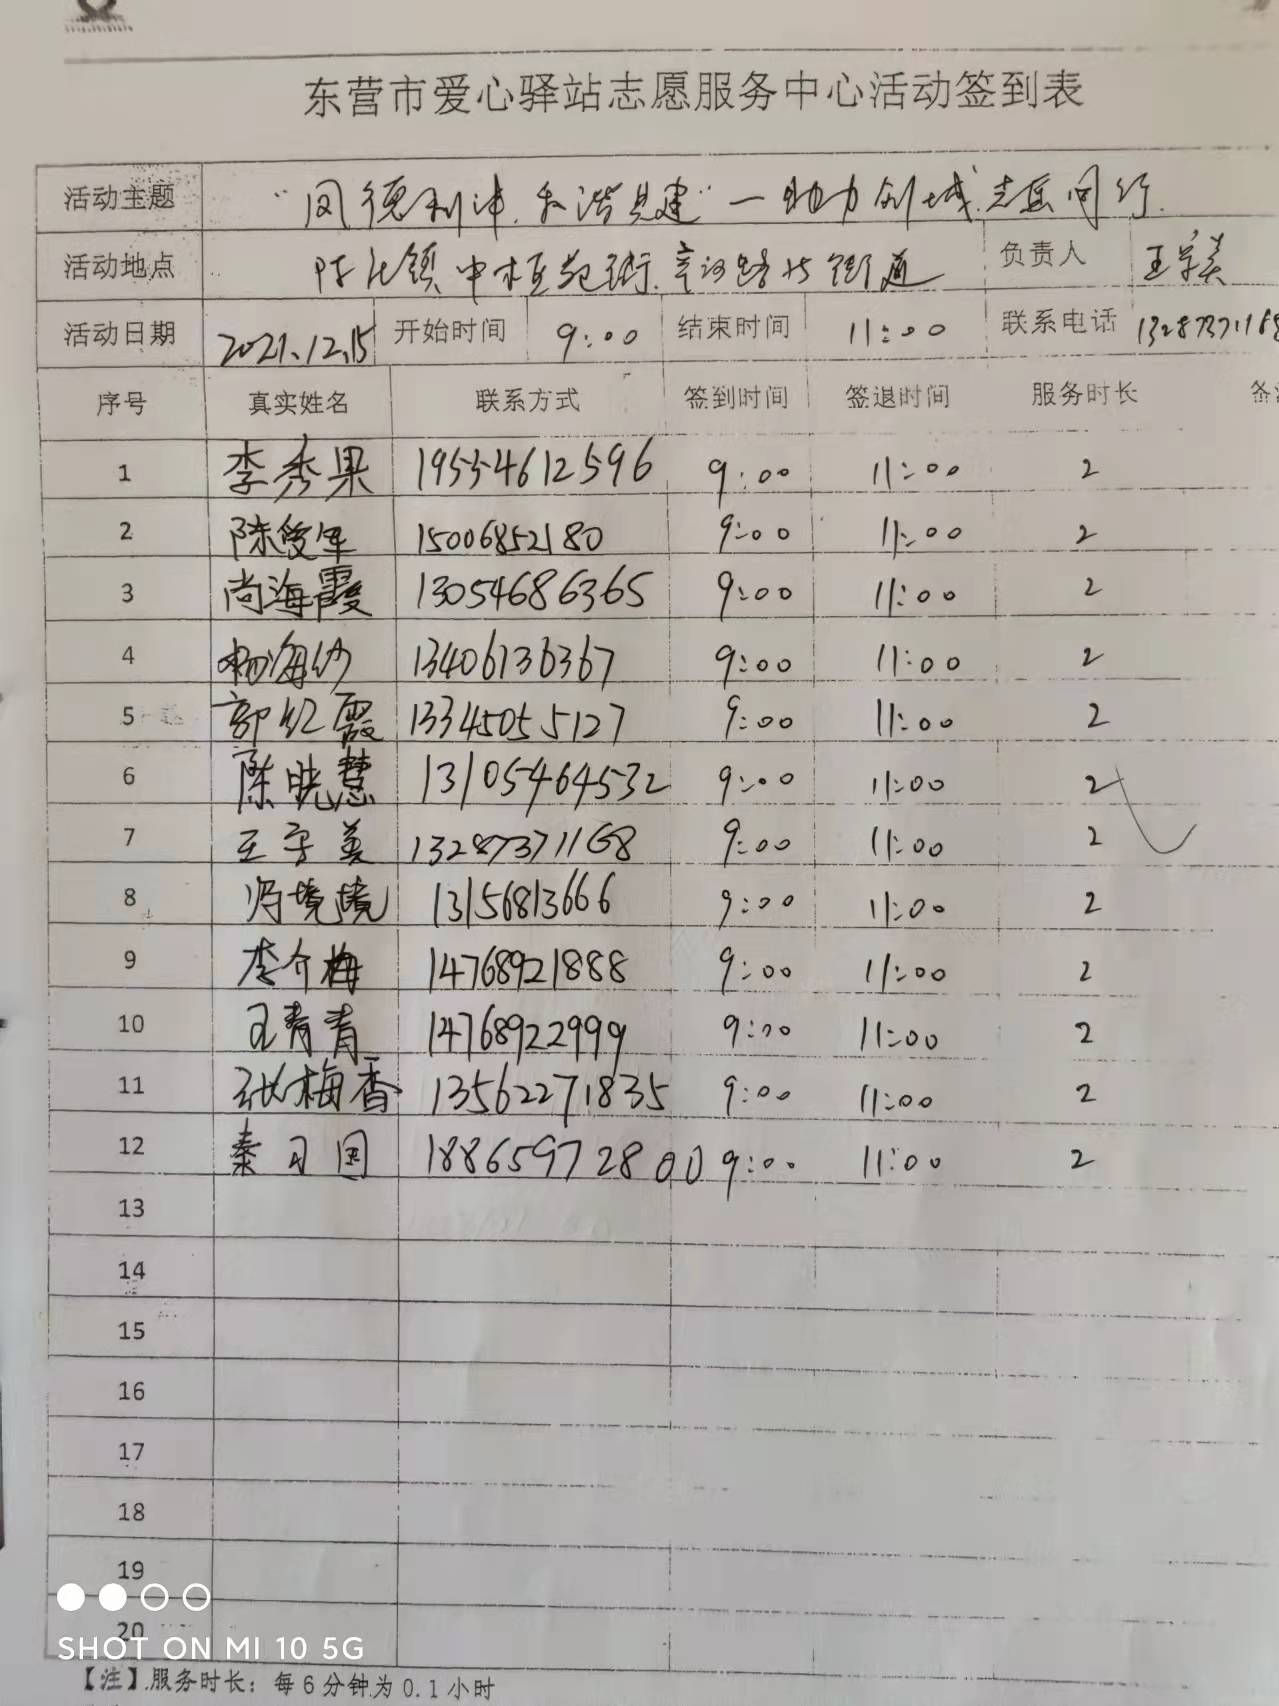 东营市爱心驿站志愿服务中心活动签到表
活动主题 "凤德利津.和谐共建"一助力创城.志愿同行.
活动地点 陈庄镇中 街 街道 负责人 王学美
活动日期 2021.12.15 开始时间 9:00 结束时间 11:00 联系电话 13287371168
序号 真实姓名 联系方式 签到时间 签退时间 服务时长
1 李秀果 19554612596 9:00 11:00 2
2 陈爱军 15006852180 9:00 11:00 2
3 尚海霞 13054686365 9:00 11:00 2
4 杨海 13406136367 9:00 11:00 2
5 郭红霞 13345055127 9:00 11:00 2
6 陈晓慧 13105464532 9:00 11:00 2
7 王学美 13287371168 9:00 11:00 2
8 境境 13156813666 9:00 11:00 2
9 李介梅 14768921888 9:00 11:00 2
10 王青青 14768922999 9:00 11:00 2
11 张梅香 13562271835 9:00 11:00 2
12 秦 国 18865972800 9:00 11:00 2
13
14
15
16
17
18
19
20
SHOT ON MI 10 5G
【注】.服务时长：每6分钟为0.1小时